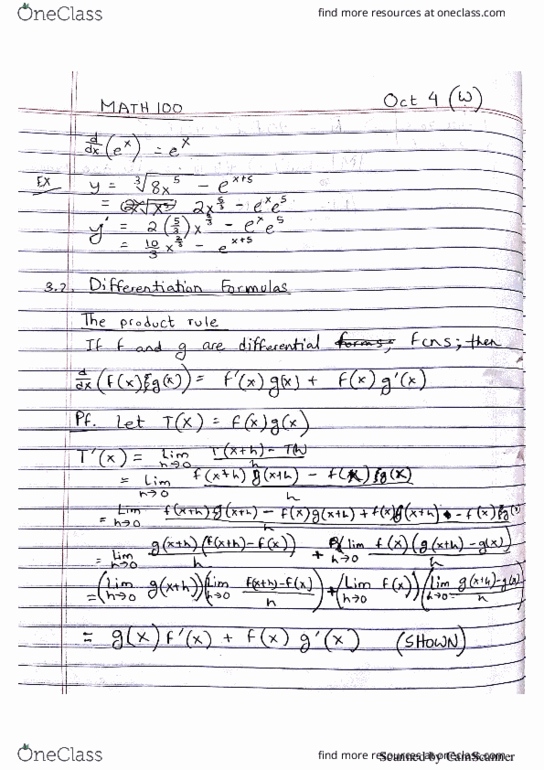 OneClass find more resources at oneclass.com
MATH 100 Oct 4 (W)
d/dx (e^x) = e^x
EX y = ∛8x^5 - e^{x+5}
= 2x^{5/3} - e^x e^5
y' = 2 (5/3) x^{2/3} - e^x e^5
= 10/3 x^{2/3} - e^{x+5}
3.2. Differentiation Formulas
The product rule
If f and g are differential fcns; then
d/dx (f(x) g(x)) = f'(x) g(x) + f(x) g'(x)
Pf. Let T(x) = f(x) g(x)
T'(x) = lim h→0 T(x+h) - T(x) / h
= lim h→0 f(x+h) g(x+h) - f(x) g(x) / h
= lim h→0 f(x+h) g(x+h) - f(x) g(x+h) + f(x) g(x+h) - f(x) g(x) / h
= lim h→0 g(x+h) (f(x+h) - f(x)) / h + lim h→0 f(x) (g(x+h) - g(x)) / h
= (lim h→0 g(x+h)) (lim h→0 f(x+h) - f(x) / h) + (lim h→0 f(x)) (lim h→0 g(x+h) - g(x) / h
= g(x) f'(x) + f(x) g'(x) (SHOWN)
OneClass find more resources at oneclass.com
Scanned by CamScanner